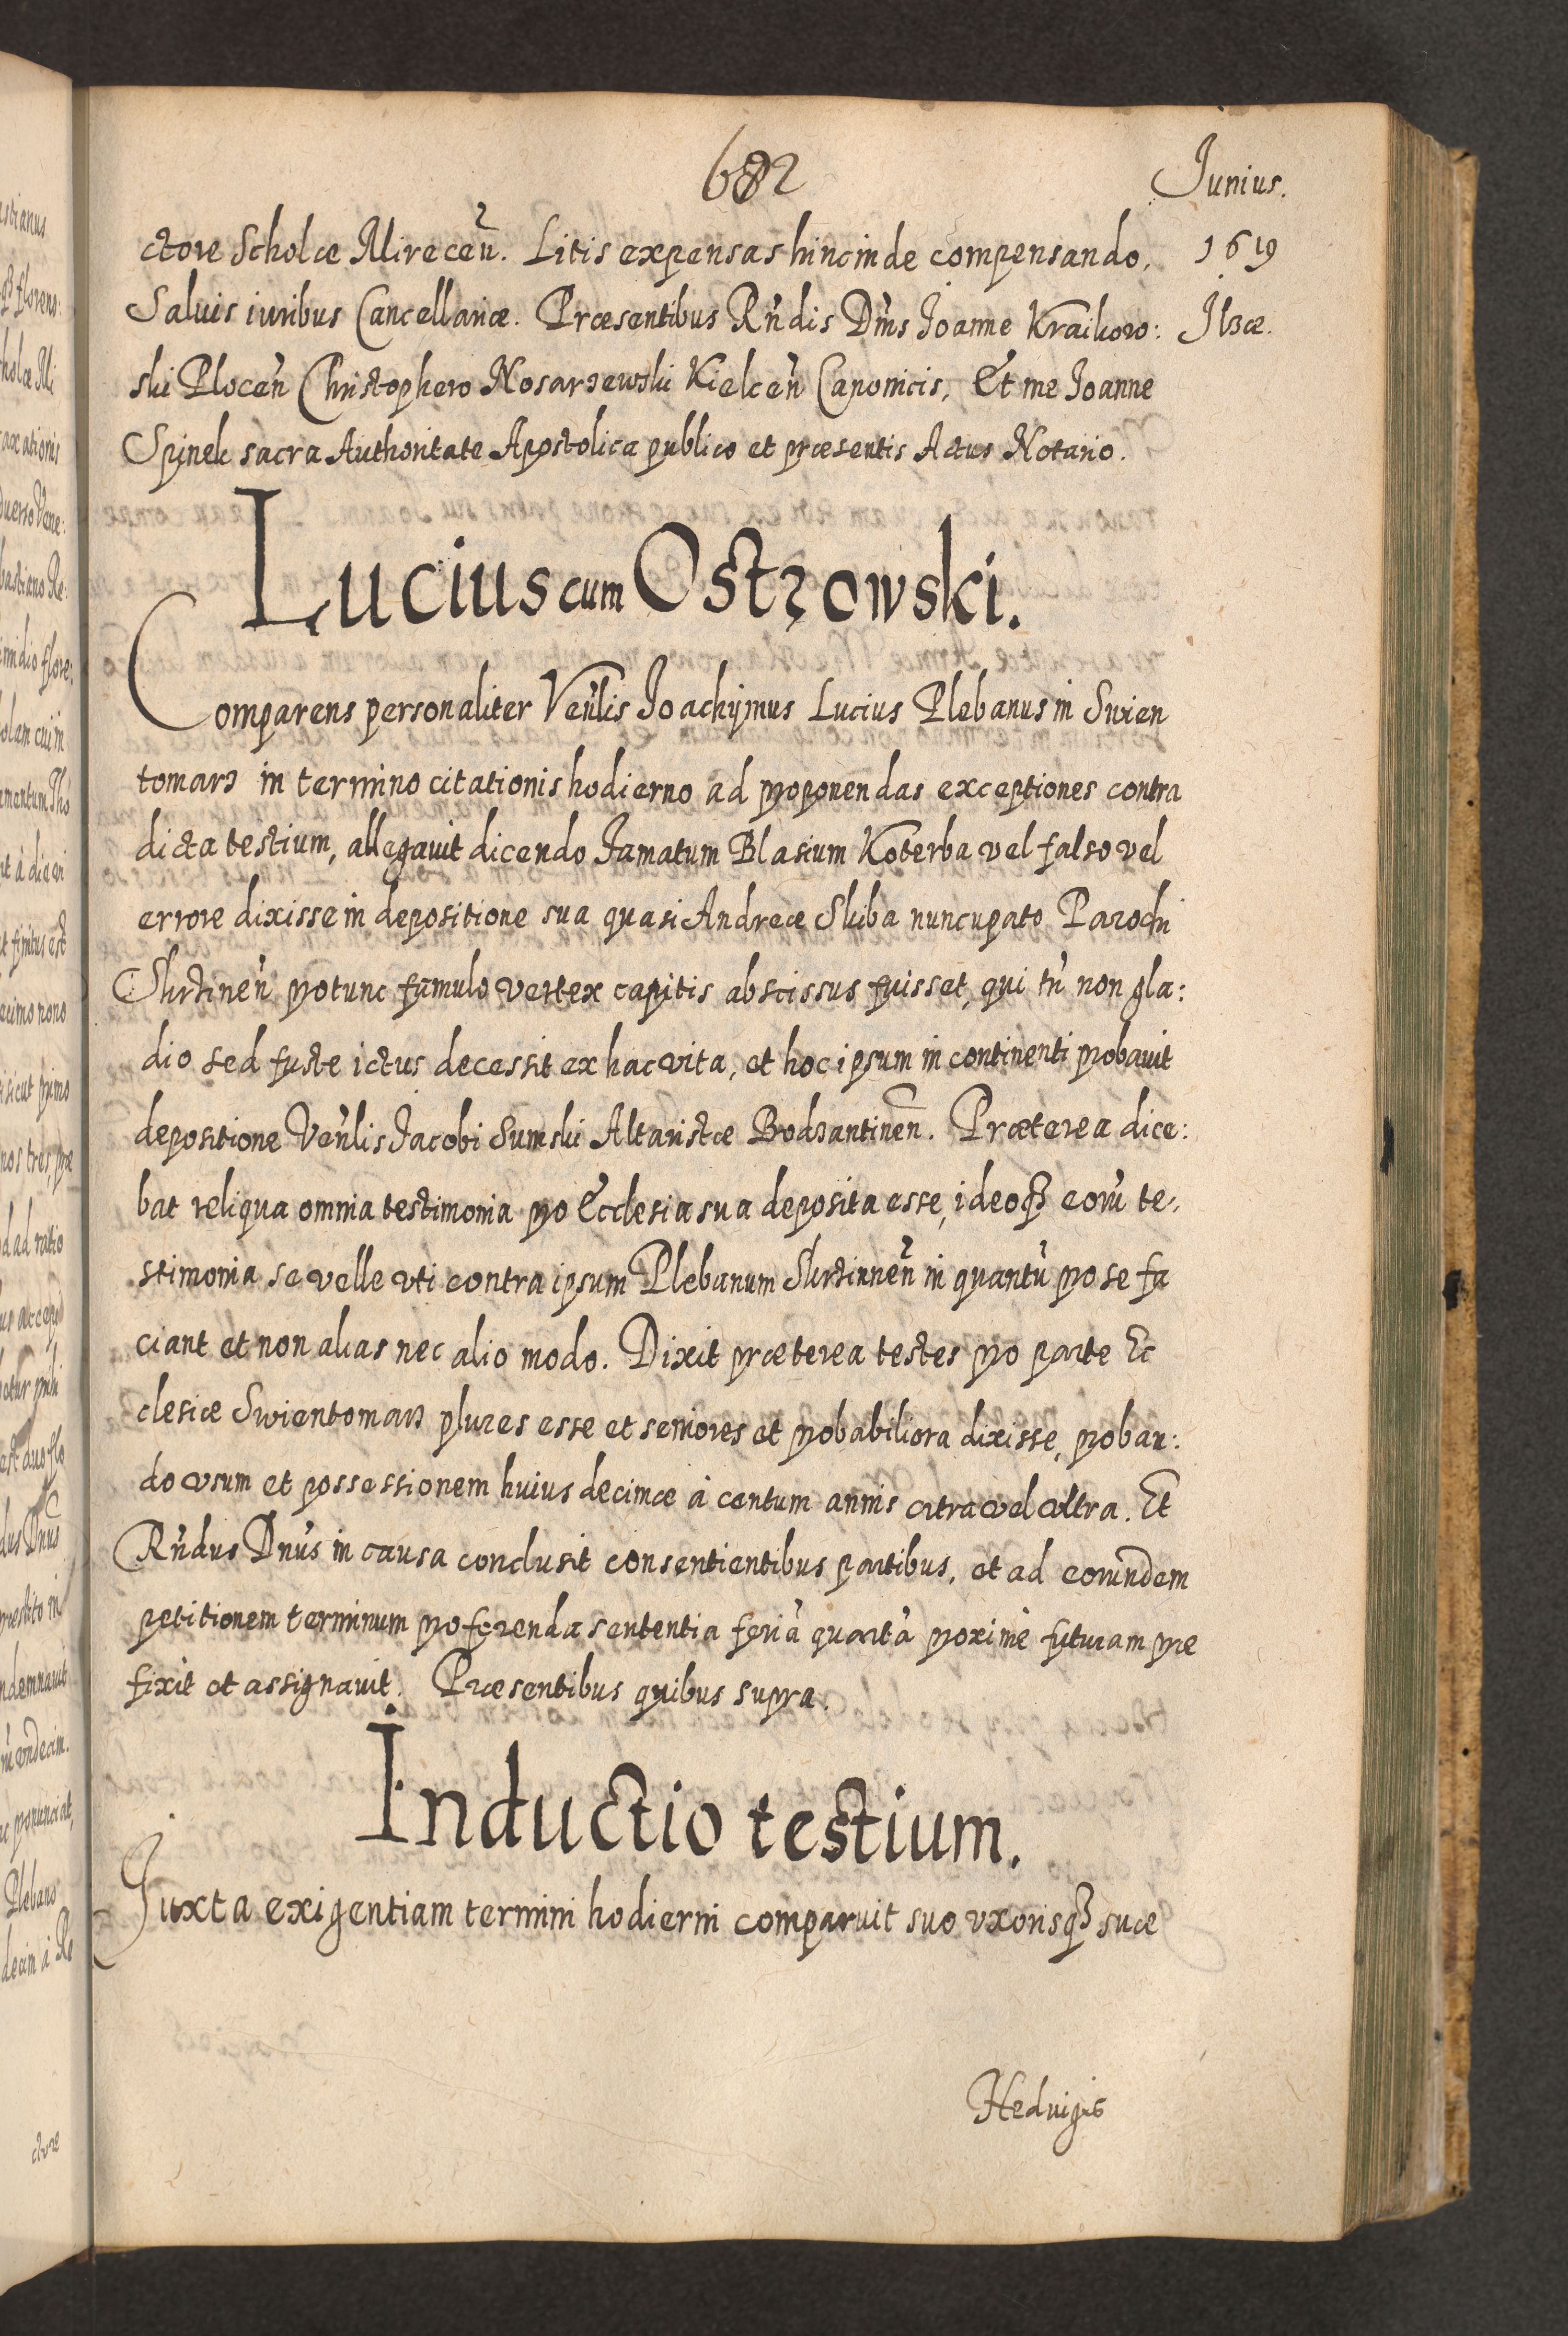 682
Junius.
ctore Scholæ Mirecen̄. Litis expensas hincinde compensando,
1619
Saluis iuribus Cancellariæ. Præsentibus Rn̄dis Dn̄is Joanne Kraikow:
Ilzæ.
ski Plocen̄ Christophero Nosarzewski Kielcen̄ Canonicis, Et me Joanne
Spinek sacra Authoritate Apostolica publico et præsentis Actus Notario.
Lucius cum Ostrowski.
Comparens personaliter Ven̄lis Joachymus Lucius Plebanus in Swien
tomarz in termino citationis hodierno ad proponendas exceptiones contra
dicta testium, allegauit dicendo Famatum Blasium Koterba vel falso vel
errore dixisse in depositione sua quasi Andreæ Skiba nuncupato Parochi
protunc famulo vertex capitis abscissus fuisset, qui tn̄ non gla:
dio sed fuste ictus decessit ex hac vita, et hoc ipsum in continenti probauit
depositione Ven̄lis Jacobi Sumski Altaristæ Bodzantinen̄. Præterea dice:
bat reliqua omnia testimonia pro Ecclesia sua deposita esse, ideoqȝ eorū te-
stimonia se velle vti contra ipsum Plebanum in quantū pro se fa
ciant et non alias nec alio modo. Dixit præterea testes pro parte Ec
clesiæ Swientomarz plures esse et seniores et probabiliora dixisse, proban:
do vsum et possessionem huius decimæ à centum annis citra vel vltra. Et
Rn̄dus Dn̄us in causa conclusit consentientibus partibus, et ad eorundem
petitionem terminum pro ferenda sententia feriâ quartâ proximè futuram præ
fixit et assignauit. Præsentibus quibus supra.
Inductio testium.
Juxta exigentiam termini hodierni comparuit suo vxorisqȝ suæ
Heduigis